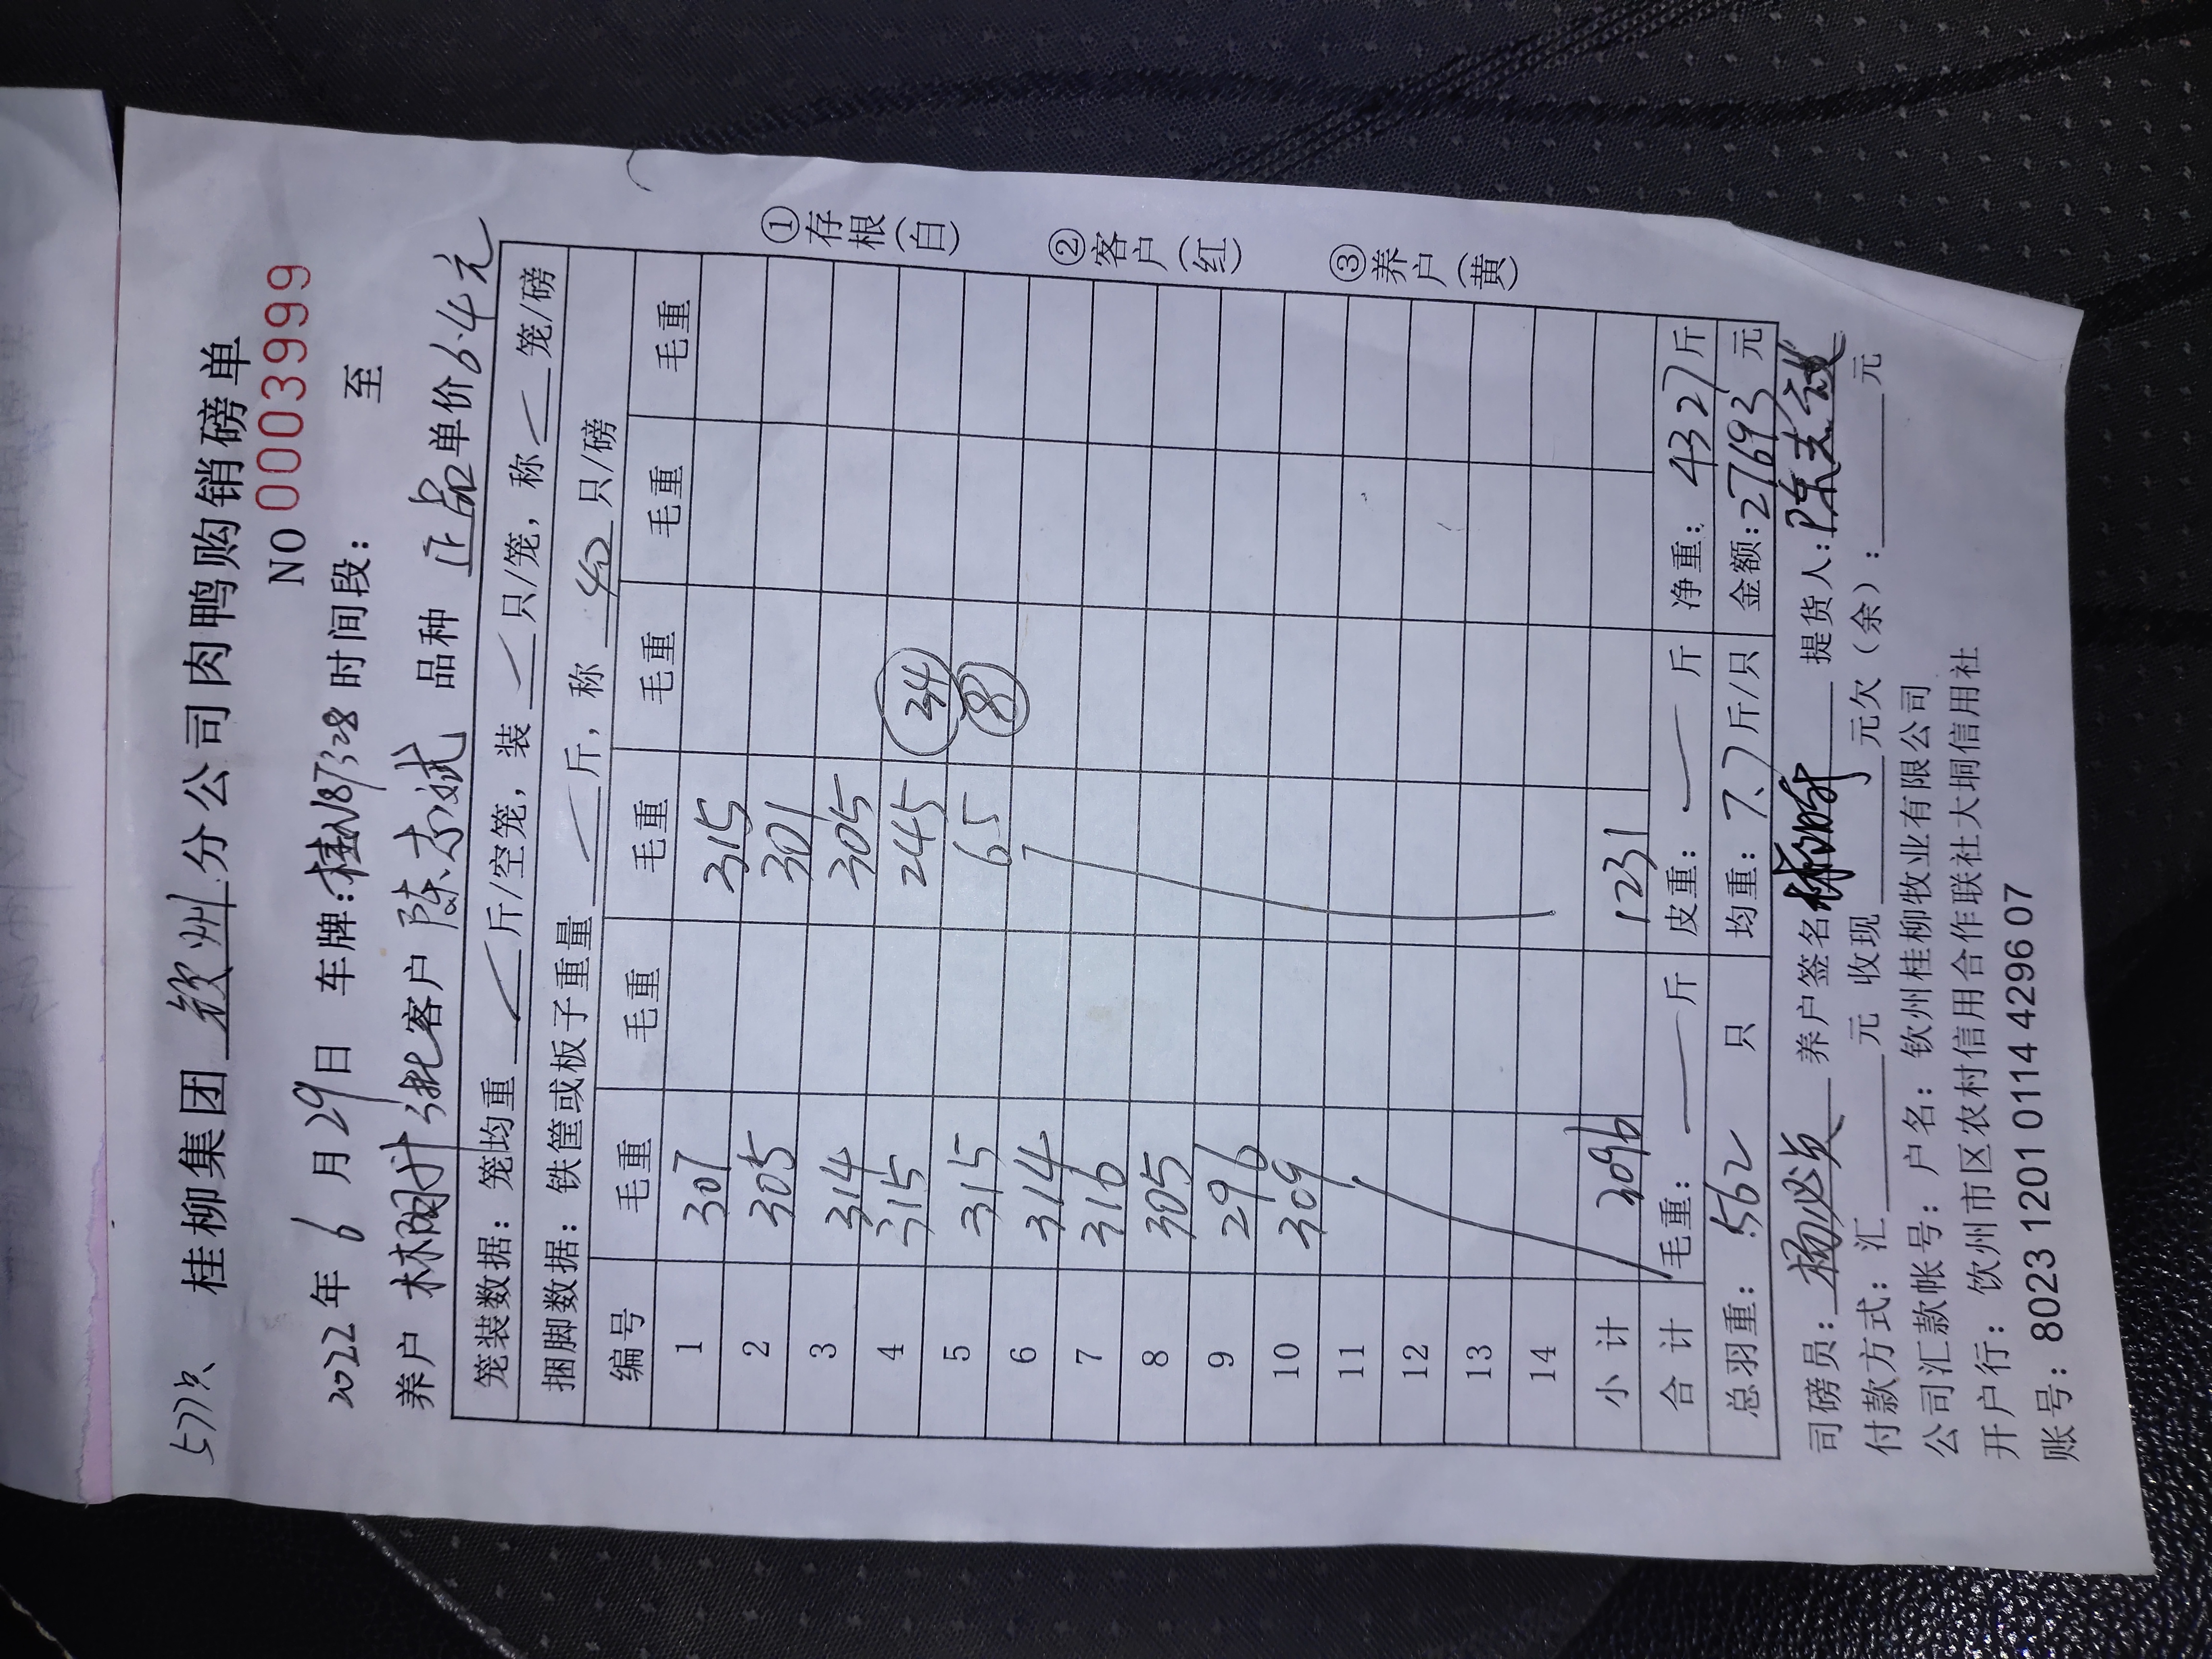 桂柳集团 钦州 分公司肉鸭购销磅单
NO 0003999
2022年 6 月 29日 车牌: 时间段: 至
养户 客户 陈志斌 品种 正品 单价 6.4 元
笼装数据:笼均重 斤/空笼,装 只/笼,称 笼/磅
捆脚数据:铁筐或板子重量 斤,称 40 只/磅
编号 毛重 毛重 毛重 毛重 毛重 毛重
1 307 315
2 305 301
3 314 305
4 315 245 34
5 315 65 8
6 314
7 316
8 305
9 296
10 309
11
12
13
14
小计 3096 1231
合计 毛重: 斤 皮重: 斤 净重: 4327 斤
总羽重: 562 只 均重: 7.7 斤/只 金额: 27693 元
司磅员: 养户签名 提货人:
付款方式:汇 元 收现 元欠(余): 元
公司汇款帐号:户名: 钦州桂柳牧业有限公司
开户行: 饮州市区农村信用合作联社大垌信用社
账号:8023 1201 0114 4296 07
①存根(白)
②客户(红)
③养户(黄)